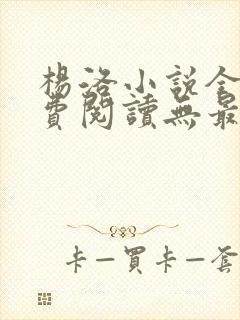 楊洛小說全
費閱讀無最
卡一買卡一套